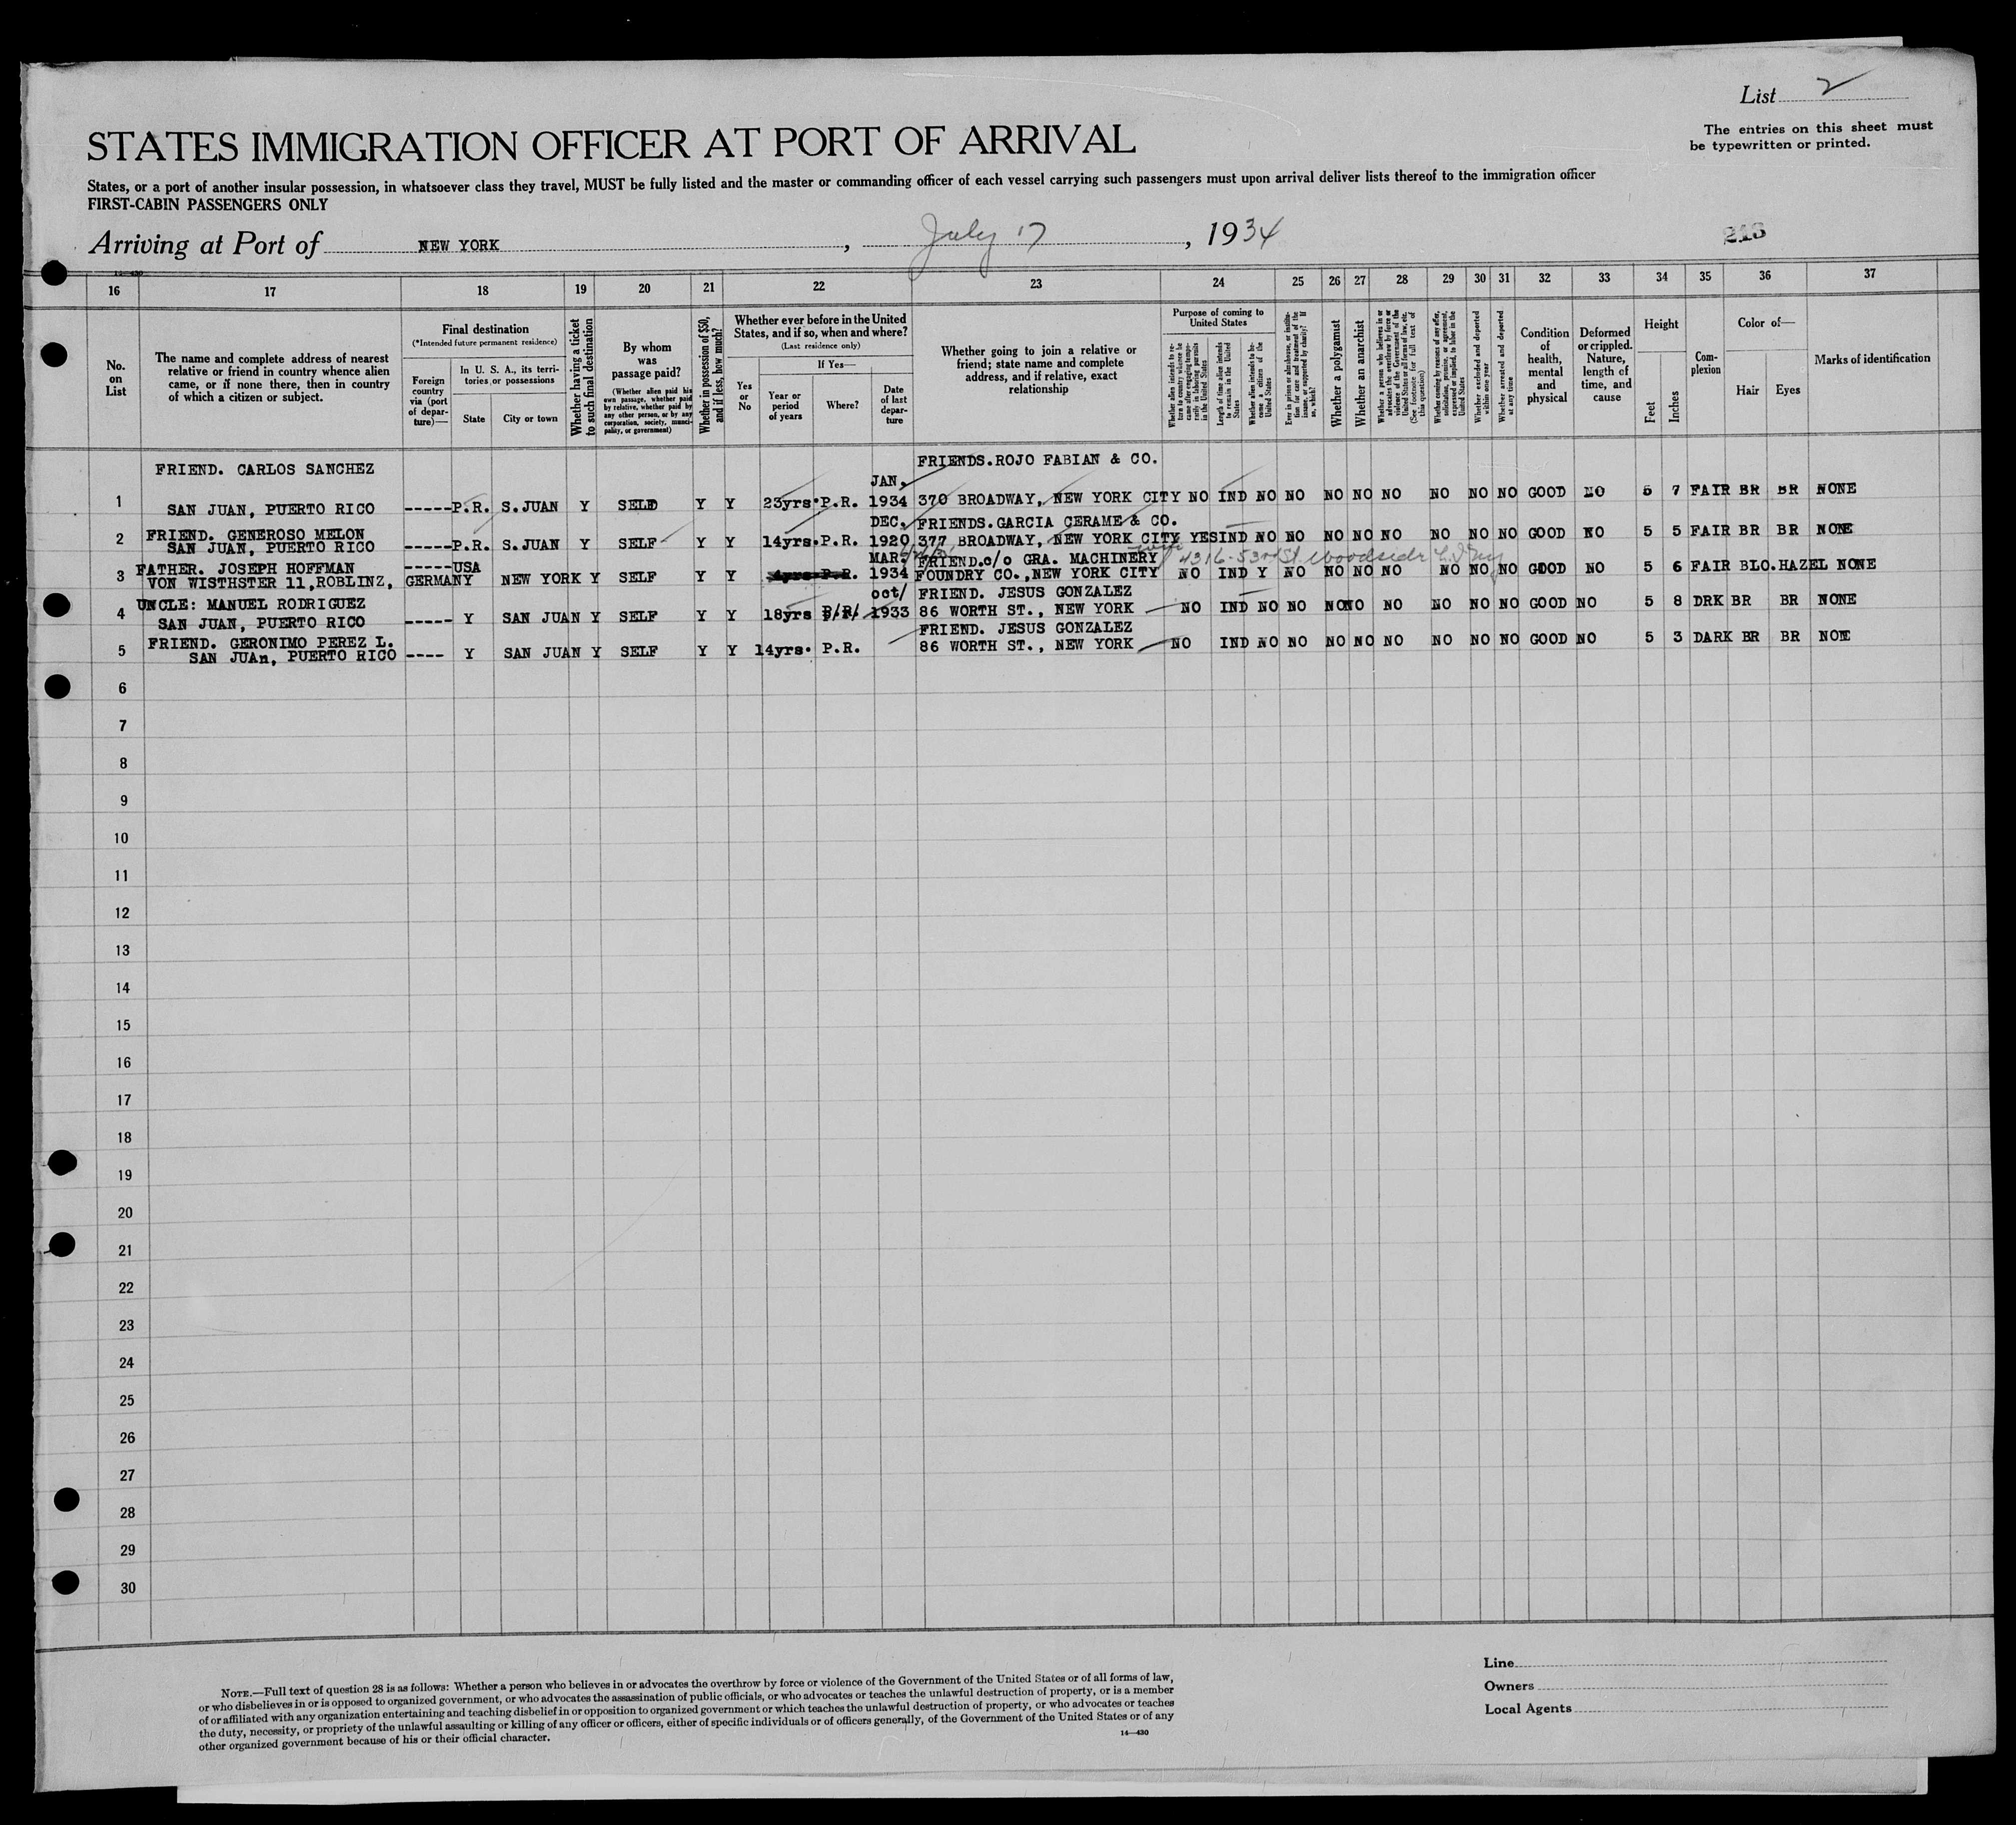 List 2
The entries on this sheet must
be typewritten or printed.
STATES IMMIGRATION OFFICER AT PORT OF ARRIVAL
States, or a port of another insular possession, in whatsoever class they travel, MUST be fully listed and the master or commanding officer of each vessel carrying such passengers must upon arrival deliver lists thereof to the immigration officer
FIRST-CABIN PASSENGERS ONLY
Arriving at Port of NEW YORK, July 17, 1934
213
14—430
16 17 18 19 20 21 22 23 24 25 26 27 28 29 30 31 32 33 34 35 36 37
No. on List
The name and complete address of nearest
relative or friend in country whence alien
came, or if none there, then in country
of which a citizen or subject.
Final destination
(*Intended future permanent residence)
Foreign country via (port of departure)—
In U. S. A., its territories, or possessions
State
City or town
Whether having a ticket to such final destination
By whom was passage paid?
(Whether alien paid his own passage, whether paid by relative, whether paid by any other person, or by any corporation, society, municipality, or government)
Whether in possession of $50, and if less, how much?
Whether ever before in the United States, and if so, when and where?
(Last residence only)
Yes or No
If Yes—
Year or period of years
Where?
Date of last departure
Whether going to join a relative or
friend; state name and complete
address, and if relative, exact
relationship
Purpose of coming to United States
Whether alien intends to return to country whence he came after engaging temporarily in laboring pursuits in the United States
Length of time alien intends to remain in the United States
Whether alien intends to become a citizen of the United States
Ever in prison or almshouse, or institution for care and treatment of the insane or supported by charity? If so, which?
Whether a polygamist
Whether an anarchist
Whether a person who believes in or advocates the overthrow by force or violence of the Government of the United States or all forms of law, etc. (See footnote for full text of this question)
Whether coming by reasons of any offer, solicitation, promise, or agreement, expressed or implied, to labor in the United States
Whether excluded and deported within one year
Whether arrested and deported at any time
Condition of health, mental and physical
Deformed or crippled. Nature, length of time, and cause
Height
Feet
Inches
Complexion
Color of—
Hair
Eyes
Marks of identification
FRIEND. CARLOS SANCHEZ FRIENDS.ROJO FABIAN & CO.
JAN.
1 SAN JUAN, PUERTO RICO -----P.R. S.JUAN Y SELD Y Y 23yrs.P.R. 1934 370 BROADWAY, NEW YORK CITY NO IND NO NO NO NO NO NO NO NO GOOD NO 5 7 FAIR BR BR NONE
FRIEND. GENEROSO MELON DEC. FRIENDS.GARCIA CERAME & CO.
2 SAN JUAN, PUERTO RICO -----P.R. S.JUAN Y SELF Y Y 14yrs.P.R. 1920 377 BROADWAY, NEW YORK CITY YES IND NO NO NO NO NO NO NO NO GOOD NO 5 5 FAIR BR BR NONE
FATHER. JOSEPH HOFFMAN -----USA MAR. FRIEND.c/o GRA. MACHINERY 4316-53rd St Woodside L.I. NY
3 VON WISTHSTER 11,ROBLINZ, GERMANY NEW YORK Y SELF Y Y 4yrs P.R. 1934 FOUNDRY CO.,NEW YORK CITY NO IND Y NO NO NO NO NO NO NO GOOD NO 5 6 FAIR BLO.HAZEL NONE
UNCLE: MANUEL RODRIGUEZ oct/ FRIEND. JESUS GONZALEZ
4 SAN JUAN, PUERTO RICO ----- Y SAN JUAN Y SELF Y Y 18yrs P/R/ 1933 86 WORTH ST., NEW YORK NO IND NO NO NO NO NO NO NO NO GOOD NO 5 8 DRK BR BR NONE
FRIEND. GERONIMO PEREZ L. FRIEND. JESUS GONZALEZ
5 SAN JUAn, PUERTO RICO ---- Y SAN JUAN Y SELF Y Y 14yrs. P.R. 86 WORTH ST., NEW YORK NO IND NO NO NO NO NO NO NO NO GOOD NO 5 3 DARK BR BR NONE
6
7
8
9
10
11
12
13
14
15
16
17
18
19
20
21
22
23
24
25
26
27
28
29
30
NOTE.—Full text of question 28 is as follows: Whether a person who believes in or advocates the overthrow by force or violence of the Government of the United States or of all forms of law,
or who disbelieves in or is opposed to organized government, or who advocates the assassination of public officials, or who advocates or teaches the unlawful destruction of property, or is a member
of or affiliated with any organization entertaining and teaching disbelief in or opposition to organized government or which teaches the unlawful destruction of property, or who advocates or teaches
the duty, necessity, or propriety of the unlawful assaulting or killing of any officer or officers, either of specific individuals or of officers generally, of the Government of the United States or of any
other organized government because of his or their official character.
14—430
Line
Owners
Local Agents